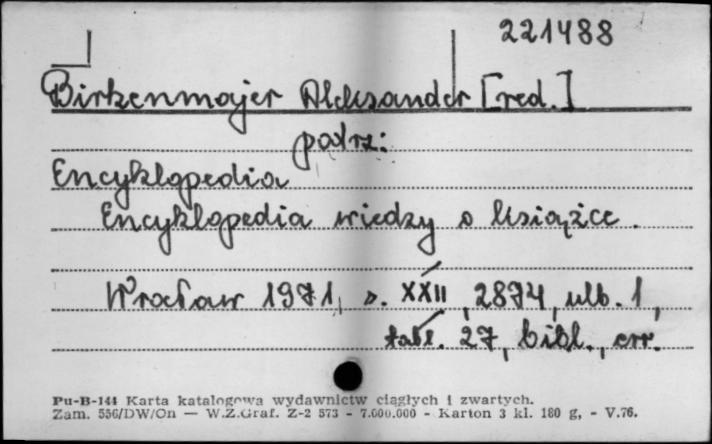 221488
Birkenmajer Aleksander [red.]
patrz:
Encyklopedia
Encyklopedia wiedzy o książce.
Wrocław 1971, s. XXII, 2874, ulb. 1,
tabl. 27, bibl., err.
Pu-B-144 Karta katalogowa wydawnictw ciągłych i zwartych.
Zam. 556/DW/On — W.Z.Graf. Z-2 573 - 7.000.000 - Karton 3 kl. 180 g, - V.76.